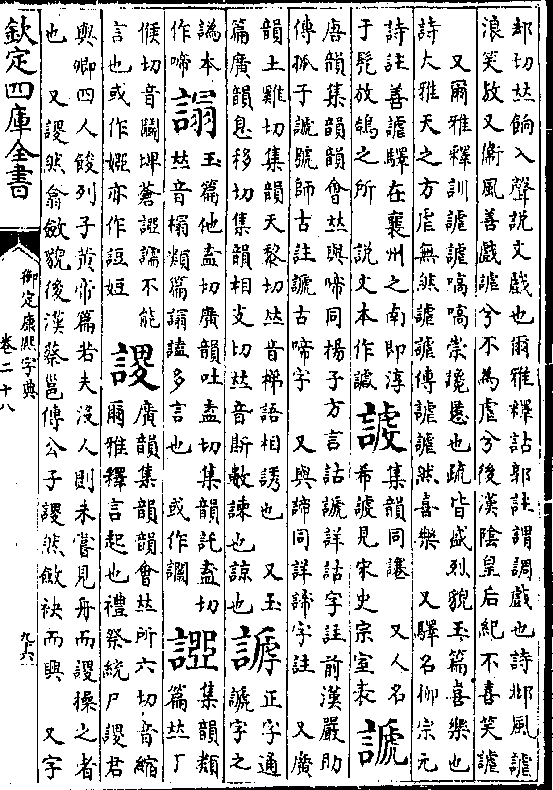 却切𠀤餉入聲說文戲也爾雅釋詁郭註謂調戲也詩邶風謔
浪笑敖又衛風善戲謔兮不為虐兮後漢陰皇后紀不喜笑謔
又爾雅釋訓謔謔嗃嗃崇讒慝也疏皆盛烈貌玉篇喜樂也
詩大雅天之方虐無然謔謔傳謔謔然喜樂　又驛名柳宗元
詩註善謔驛在襄州之南即淳
于髠放鵠之所　說文本作
集韻同　又人名
希　見宋史宗室表
謕
唐韻集韻韻會𠀤與啼同楊子方言詀謕詳詀字註前漢嚴助
傳孤子謕號師古註謕古啼字　又與諦同詳諦字註　又廣
韻土雞切集韻天黎切𠀤音梯語相誘也　又玉
篇廣韻息移切集韻相支切𠀤音斯數諫也諒也
正字通
謕字之
譌本
作啼
玉篇他盍切廣韻吐盍切集韻託盍切
𠀤音榻類篇　譶多言也　或作
集韻類
篇𠀤丁
候切音鬭埤蒼　譳不能
言也或作　亦作
謖
廣韻集韻韻會𠀤所六切音縮
爾雅釋言起也禮祭統尸謖君
與卿四人餕列子黃帝篇若夫沒人則未嘗見舟而謖操之者
也　又謖然翕斂貌後漢蔡邕傳公子謖然斂袂而興　又字
欽定四庫全書
御定康熙字典
卷二十八
九六